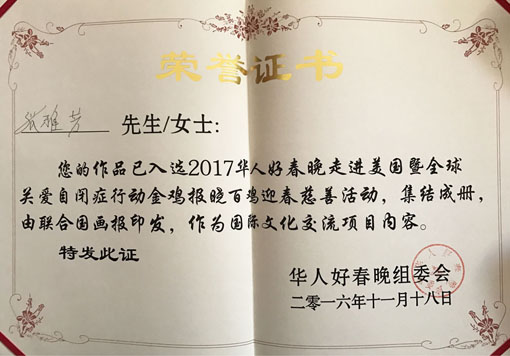 荣誉证书
张雅芳 先生/女士:
您的作品已入选2017华人好春晚走进美国暨全球
关爱自闭症行动金鸡报晓百鸡迎春慈善活动，集结成册，
由联合国画报印发，作为国际文化交流项目内容。
特发此证
华人好春晚组委会
二零一六年十一月十八日